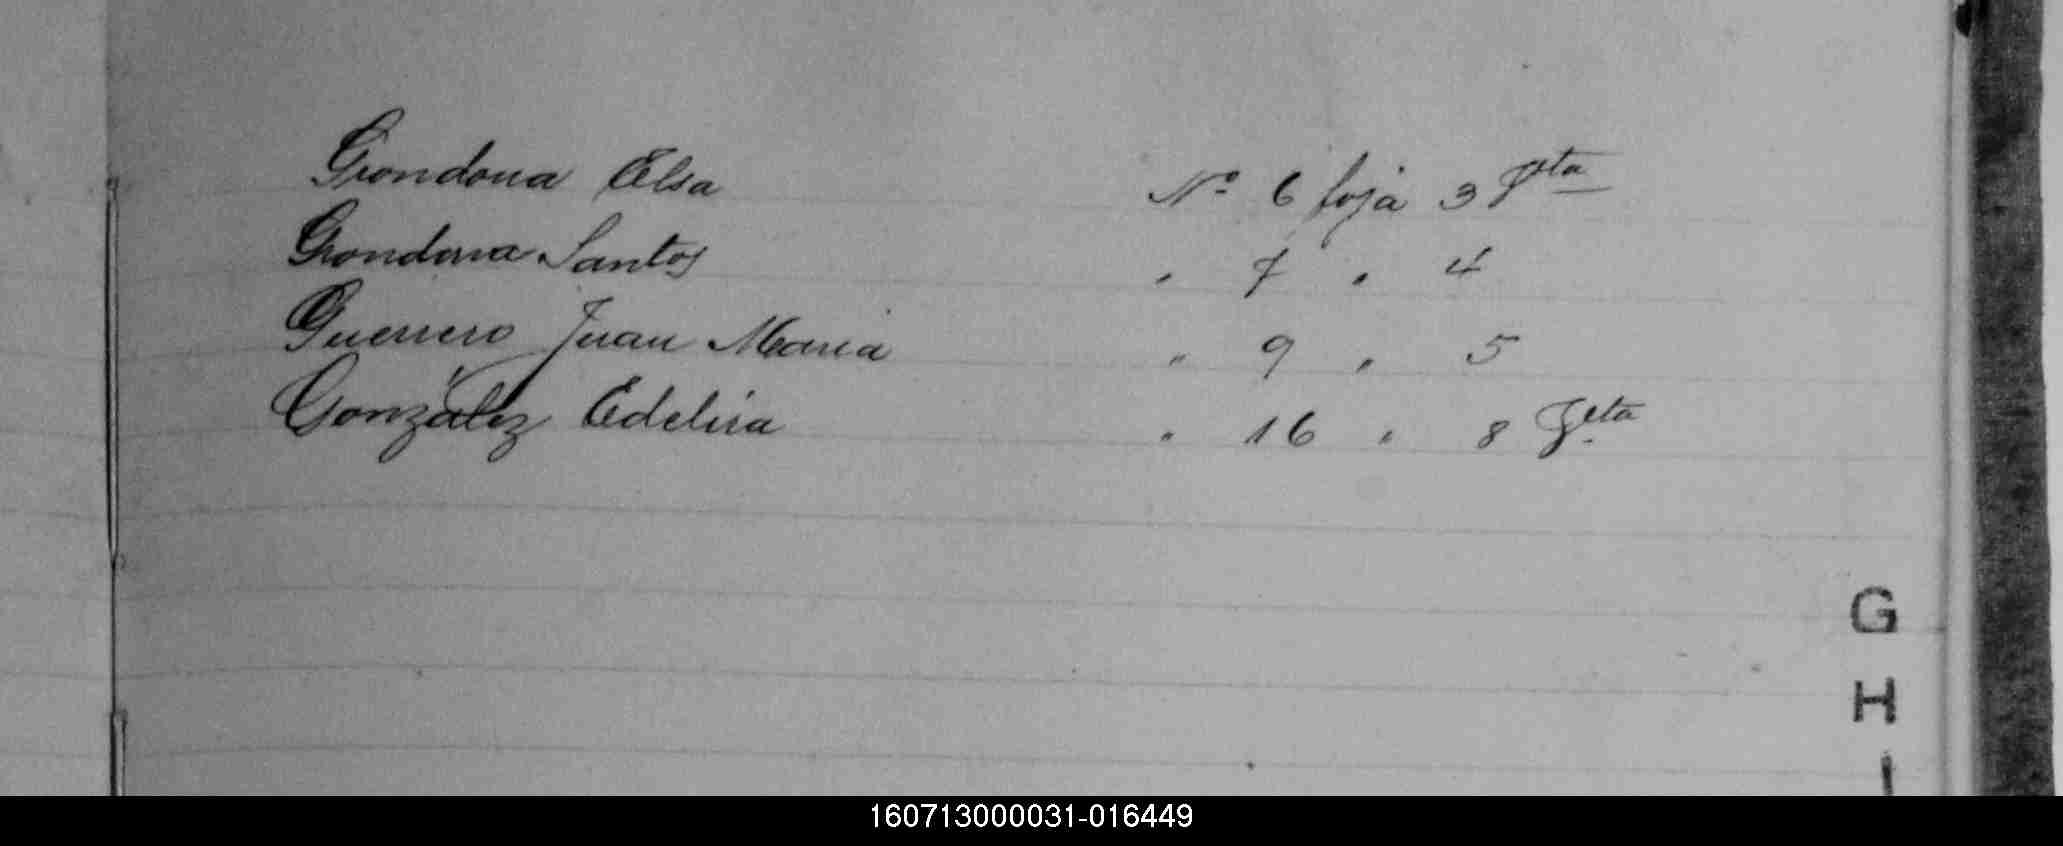 Grondona Elsa Nº 6 foja 3 Vta
Grondona Santos " 7 " 4
Guerrero Juan Maria " 9 " 5
González Edelira " 16 " 8 Vta
G
H
I
160713000031-016449